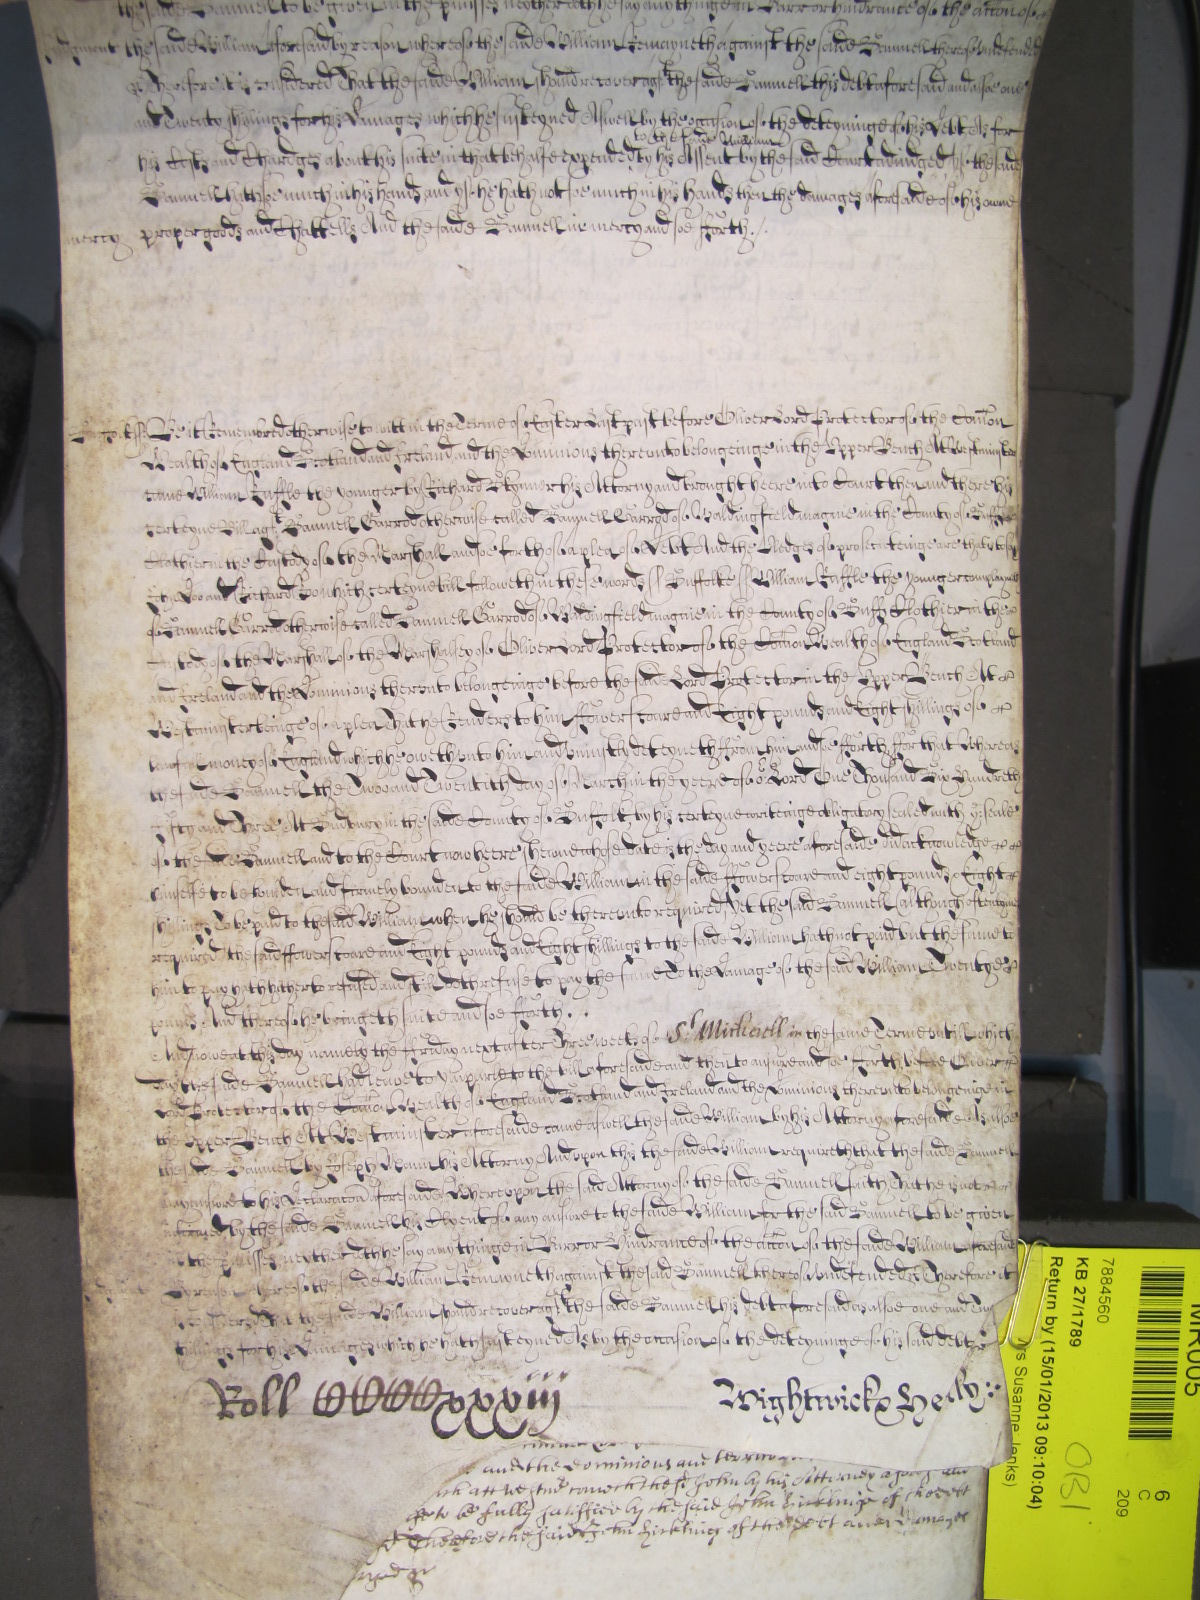 the saide Samuell to be given in the pmisses neither doth he say any thinge in Barr or hindrance of the accon of
Judgment the saide William aforesaid by reason whereof the saide William Remayneth against the saide Samuell thereof undefended
Therefore it is considered That the saide William should recover agt the saide Samuell his debt aforesaid and alsoe one
and Twenty shillings for his Damages which he susteyned Aswell by the occasion of the deteyninge of his Debt As for
to the saide William
his Costs and Chardges about his suite in that behalfe expended by his Assent by the said Court adiudged If the said
Samuell hath soe much in his hands and yf he hath not soe much in his hands then the damages aforesaide of his owne
mercy proper goods and Chattells And the saide Samuell in mercy and soe fforth
Suffolk ss Be it Remembred otherwise to witt in the Terme of Easter Last past before Oliver Lord Protector of the Comon
Wealth of England Scotland and Ireland and the Dominions thereunto belongeinge in the Upper Bench At Westminster
came William Ruffle the younger by Richard Skynner his Attorny and brought heere into Court then and there his
certeyne Bill agt Samuell Garrod otherwise called Samuell Garrod of Waldingfield magne in the County of Suff
Clothier in the Custody of the Marshall and soe forth of a plea of Debt And the Pledges of prosecuteinge are that is to say
John Doo and Richard Roo which certeyne bill followeth in these words ss Suffolke ss William Ruffle the younger complayneth
of Samuell Garrod otherwise called Samuell Garrod of Waldingfield magne in the County of Suff Clothier in the
Custody of the Marshall of the Marshalsey of Oliver Lord Protector of the Comon Wealth of England Scotland
and Ireland and the Dominions thereunto belongeinge before the saide Lord Protector in the Upper Bench At
Westminster beinge of a plea That he Render to him ffower scoare and Eight pounds and Eight shillings of
lawfull money of England which he oweth unto him and uniustly deteyneth ffrom him and soe fforth ffor that Whereas
the saide Samuell the Twoo and Twentith day of March in the yeere of or Lord One Thousand Six Hundreth
ffifty and Three At Sudbury in the saide County of Suffolk by his certeyne writeinge obligatory sealed with ye seale
of the saide Samuell and to the Court now heere shewne whose date is the day and yeere aforesaide did acknowledge
himselfe to be bounden and firmely bound to the saide William in the saide ffower scoare and eight pounds & Eight
shillings To be paid to the said William when he should be thereunto required Yet the said Samuell (although oftentymes
required) the said ffower scoare and Eight pounds and Eight shillings to the saide William hath not paid but the same to
him to pay hath hitherto refused and still doth refuse to pay the same To the Damage of the said William Twenty
pounds And thereof he bringeth suite and soe fforth
And now at this day namely the ffriday next after Three weeks of St Michaell in the same Terme untill which
day the saide Samuell had leave to Imparle to the bill aforesaide and then to answere and soe fforth before Oliver
Lord Protector of the Comon Wealth of England Scotland and Ireland and the Dominions thereunto belongeinge in
the Upper Bench At Westminster aforesaide came aswell the saide William by his Attorny aforesaide As alsoe
the saide Samuell by Joseph his Attorny And upon this the saide William requireth that the saide Samuell
may answere to his Declaracon aforesaide Whereupon the said Attorny of the saide Samuell saith That he is not
informed by the saide Samuell his Clyent of any answere to the saide William for the said Samuell to be given
in the pmisses neither doth he say any thinge in Barr or Hindrance of the accon of the saide William aforesaide
By reason whereof the saide William Remayneth against the said Samuell thereof undefended Therefore it
is considered That the saide William should recover agt the saide Samuell his debt aforesaid as alsoe one and
shillings for his Damages which he hath susteyned As by the occasion of the deteyninge of his said debt
Roll xxxviij Wightwick & Hesly
and the dominions and terr
att westmr cometh the sd John by his Attorney
to be fully satisfied by the said John Hirkling of the debt
Therefore the said John Hirkling of the debt and Damages
MR005
7884560
KB 27/1789
Return by (15/01/2013 09:10:04)
Susanne Jenks)
OBI
6
C
209